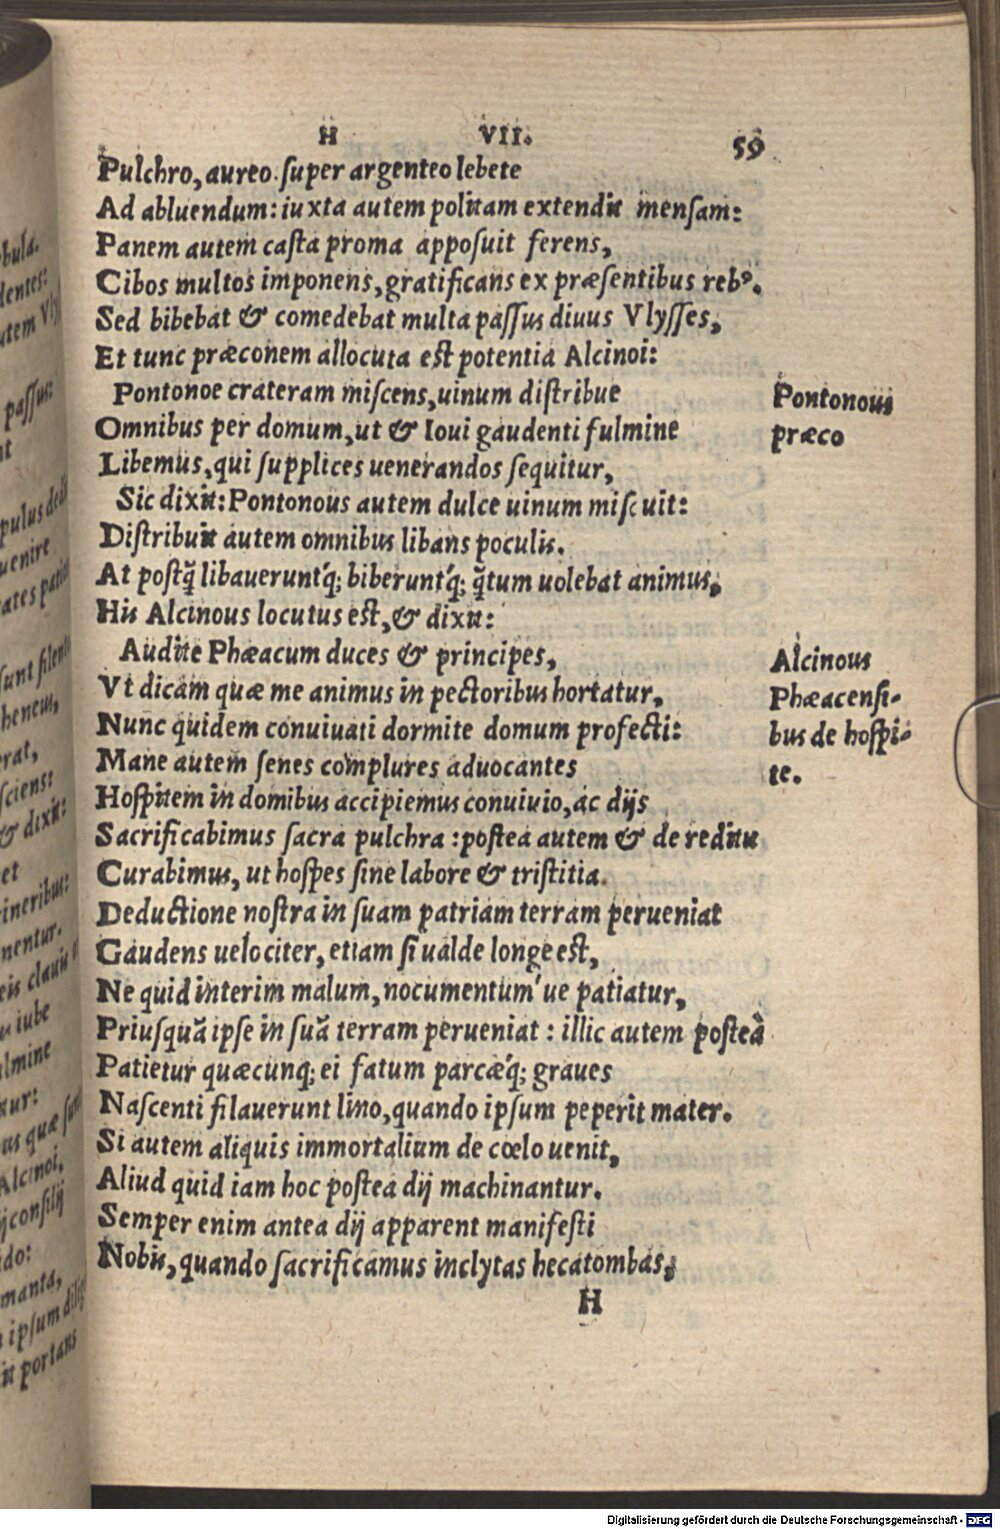 H VII. 59
Pulchro, aureo super argenteo lebete
Ad abluendum: iuxta autem politam extendit mensam:
Panem autem casta proma apposuit ferens,
Cibos multos imponens, gratificans ex præsentibus rebꝰ.
Sed bibebat & comedebat multa passus diuus Vlysses,
Et tunc præconem allocuta est potentia Alcinoi:
Pontonoe crateram miscens, uinum distribue
Omnibus per domum, ut & Ioui gaudenti fulmine
Libemus, qui supplices uenerandos sequitur,
Sic dixit: Pontonous autem dulce uinum miscuit:
Distribuit autem omnibus libans poculis.
At postq̃ libauerunt'q; biberunt'q; q̃tum uolebat animus,
His Alcinous locutus est, & dixit:
Audite Phæacum duces & principes,
Vt dicam quæ me animus in pectoribus hortatur,
Nunc quidem conuiuati dormite domum profecti:
Mane autem senes complures aduocantes
Hospitem in domibus accipiemus conuiuio, ac dijs
Sacrificabimus sacra pulchra: postea autem & de reditu
Curabimus, ut hospes sine labore & tristitia.
Deductione nostra in suam patriam terram perueniat
Gaudens uelociter, etiam si ualde longe est,
Ne quid interim malum, nocumentum'ue patiatur,
Priusquã ipse in suã terram perueniat: illic autem posteà
Patietur quæcunq; ei fatum parcæ'q; graues
Nascenti filauerunt lino, quando ipsum peperit mater.
Si autem aliquis immortalium de cœlo uenit,
Aliud quid iam hoc postea dij machinantur.
Semper enim antea dij apparent manifesti
Nobis, quando sacrificamus inclytas hecatombas,
H
Pontonous
præco
Alcinous
Phæacensi-
bus de hospi-
te.
bula.
dentes:
passus:
uenire
heneus,
erat,
sciens:
& dixit:
et
ineribus:
nentur.
iube
Alcinoi,
manta,
portans
Digitalisierung gefördert durch die Deutsche Forschungsgemeinschaft - DFG